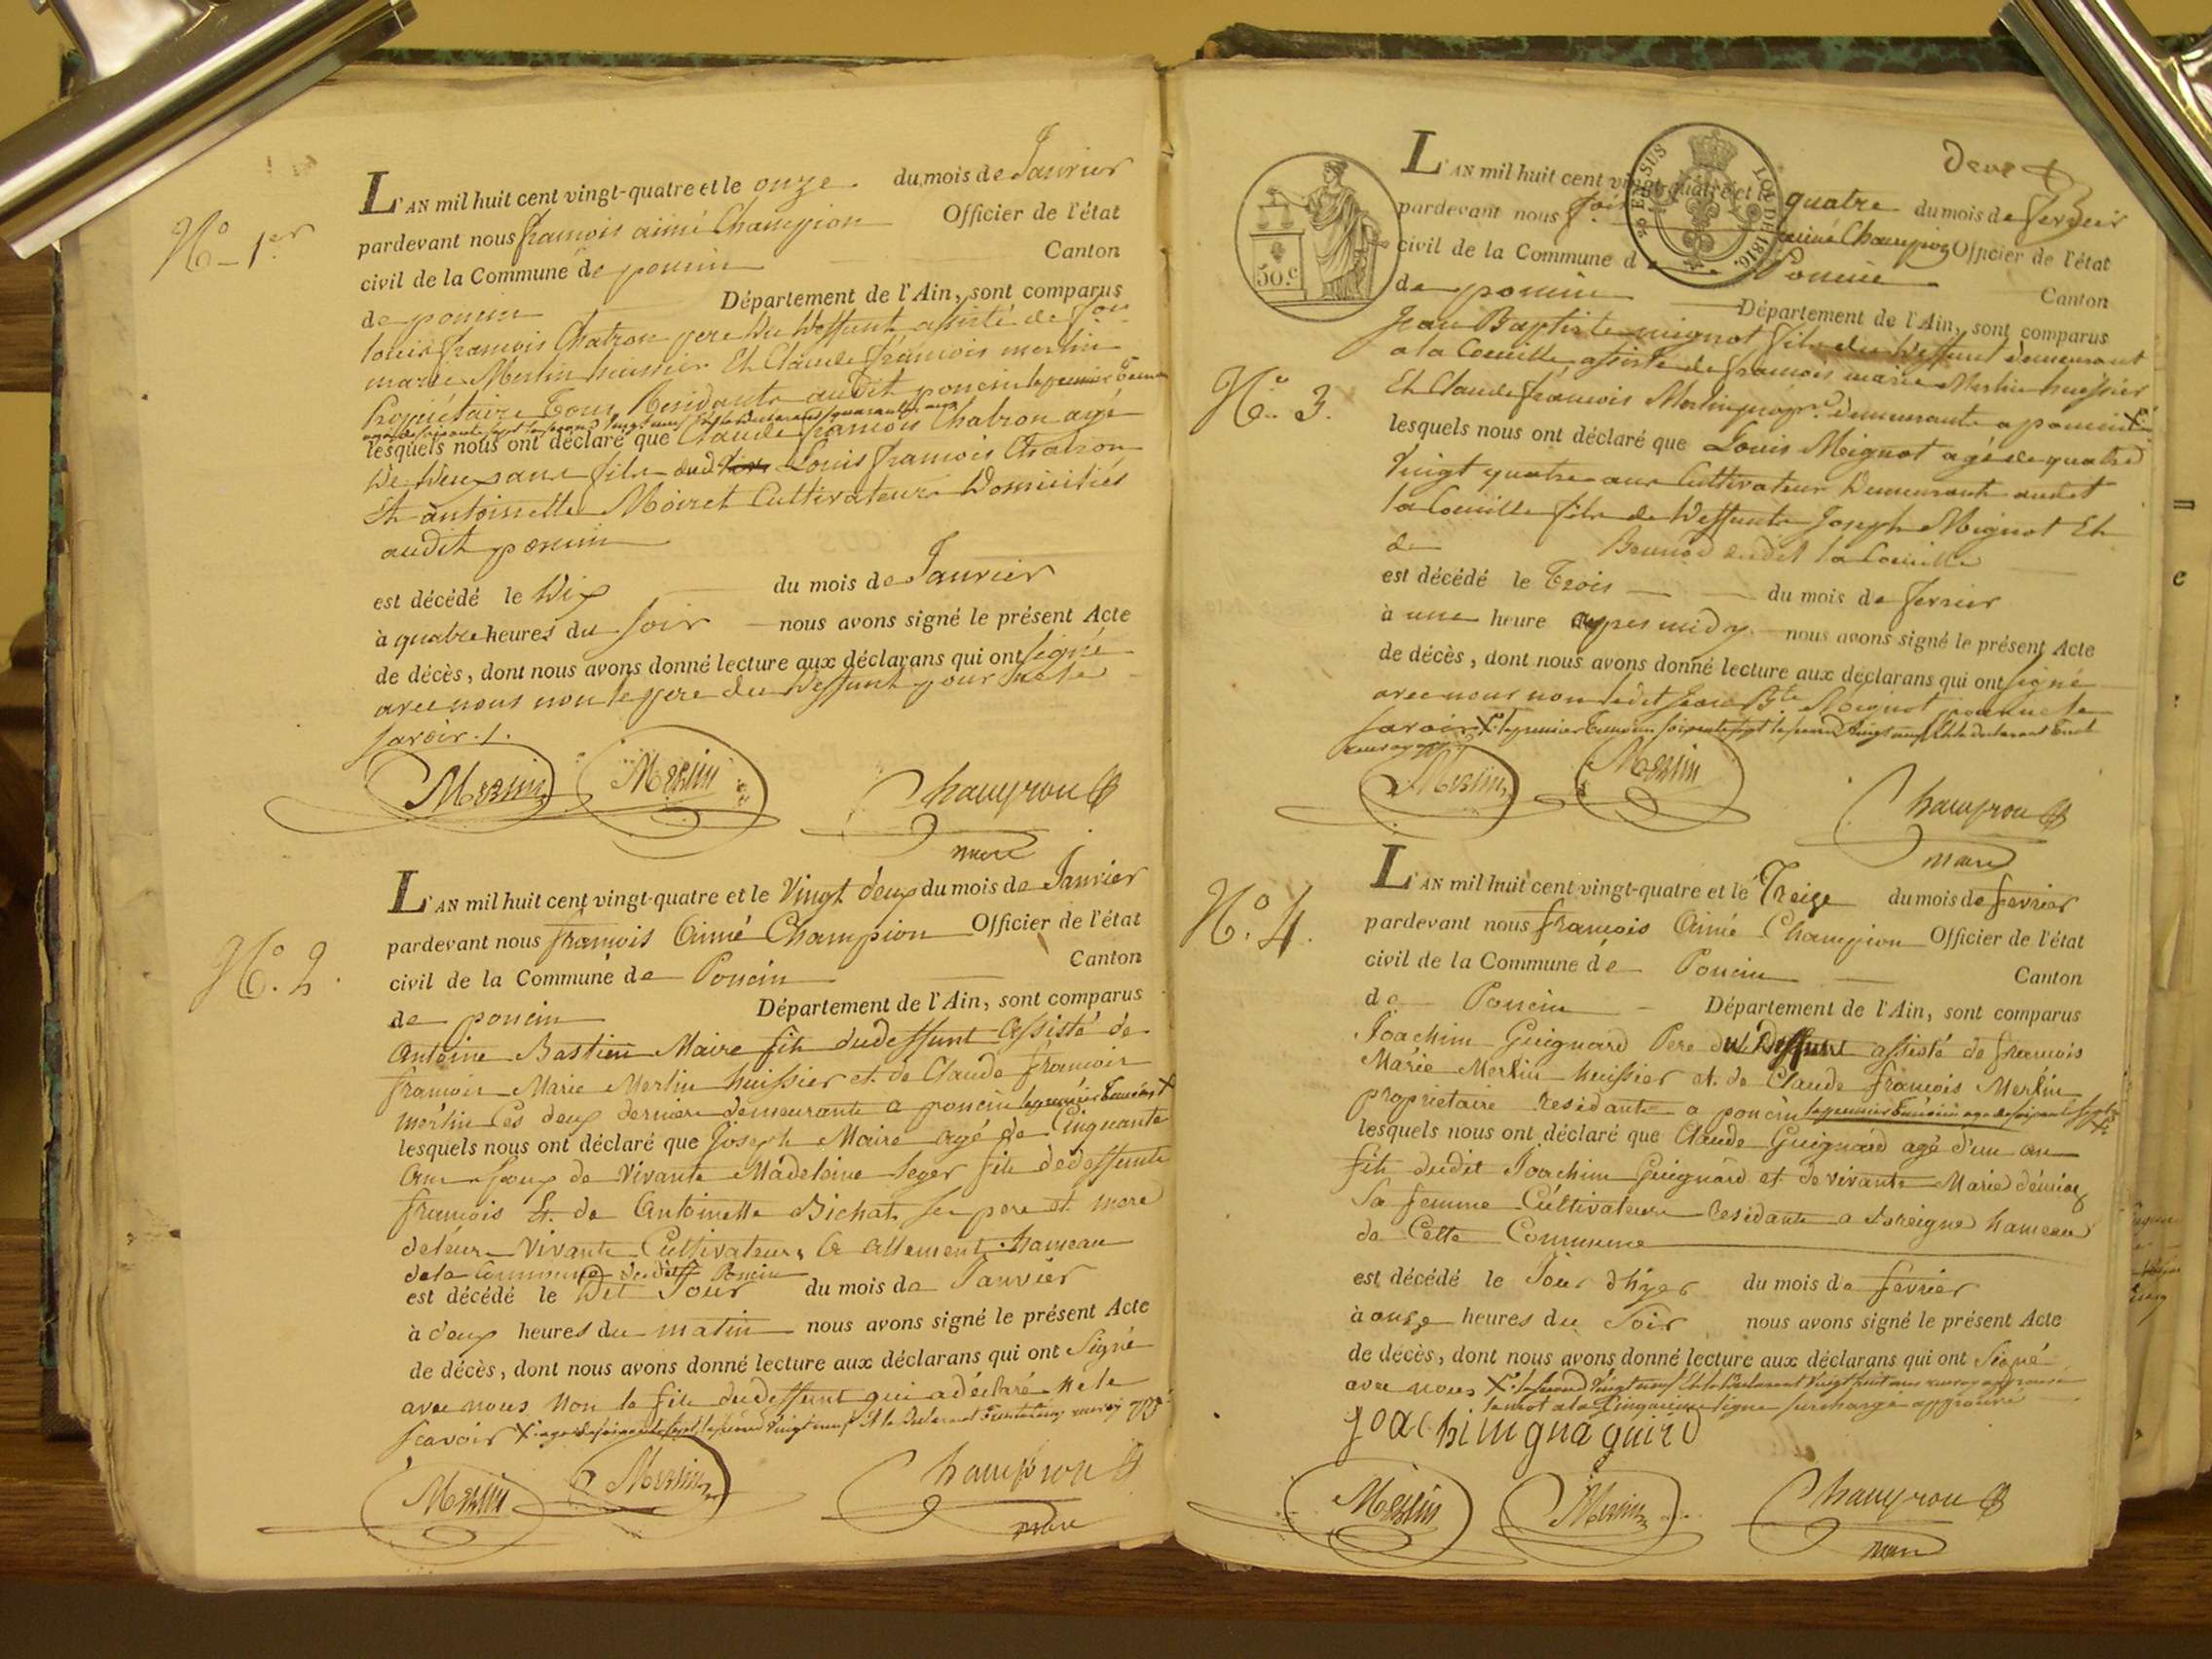 N.o 1.er
L'AN mil huit cent vingt-quatre et le onze du mois de Janvier
pardevant nous francois aimé Champion Officier de l'état
civil de la Commune de poncin Canton
de poncin Département de l'Ain, sont comparus
louis francois Chatron pere du deffunt assisté de fois
marie Merlin huissier Et Claude francois merlin
Propriétaire Tous Residants audit poncin le premier temoin
lesquels nous ont déclaré que Claude francois Chatron agé
De deux ans fils dud Louis francois Chatron
Et antoinette Moiret Cultivateurs Domiciliés
audit poncin
est décédé le Dix du mois de Janvier
à quatre heures du soir nous avons signé le présent Acte
de décès, dont nous avons donné lecture aux déclarans qui ont signé
avec nous non le pere du deffunt pour ne le
savoir ./.
Merlin Merlin Champion
maire
N.o 2.
L'AN mil huit cent vingt-quatre et le Vingt deux du mois de Janvier
pardevant nous francois Aimé Champion Officier de l'état
civil de la Commune de Poncin Canton
de poncin Département de l'Ain, sont comparus
Antoine Bastien Maire fils dudeffunt Assisté de
francois Marie Merlin huissier et de Claude francois
merlin Ces deux derniers demeurants a poncin le premier temoin X
lesquels nous ont déclaré que Joseph Maire agé de Cinquante
Ans Epoux de Vivante Madeleine Leger fils dedeffunts
francois Et de Antoinette Bichat ses pere et mere
deleur Vivants Cultivateurs a allement hameau
dela Commune dudit Poncin
est décédé le Dit Jour du mois de Janvier
à deux heures du matin nous avons signé le présent Acte
de décès, dont nous avons donné lecture aux déclarans qui ont Signé
avec nous Non le fils dudeffunt qui a déclaré ne le
scavoir X agé de soixante sept le second vingt neuf Et le Declarant
Merlin Merlin Champion
maire
deux
50 c.
25 EN SUS
LOI DE 1816.
N.o 3.
L'AN mil huit cent vingt-quatre et le quatre du mois de fevrier
pardevant nous aimé Champion Officier de l'état
civil de la Commune d Poncin Canton
de poncin Département de l'Ain, sont comparus
Jean Baptiste mignot fils du deffunt demeurant
a la Coueille assisté de francois marie Merlin huissier
Et Claude francois Merlin propr.e demeurants a poncin X
lesquels nous ont déclaré que Louis Mignot agé de quatre
Vingt quatre ans Cultivateur Demeurant audit
la Coueille fils de Deffunts Joseph Mignot Et
de audit la Coueille
est décédé le Trois du mois de fevrier
à une heure apres midy nous avons signé le présent Acte
de décès, dont nous avons donné lecture aux déclarans qui ont signé
avec nous non ledit Jean B.te Mignot pour ne le
savoir X le premier temoin soixante sept le second vingt neuf Et le declarant
Merlin Merlin Champion
maire
N.o 4.
L'AN mil huit cent vingt-quatre et le Treize du mois de fevrier
pardevant nous francois Aimé Champion Officier de l'état
civil de la Commune de Poncin Canton
de Poncin Département de l'Ain, sont comparus
Joachim Guignard Pere du Deffunt assisté de francois
Marie Merlin huissier et de Claude francois Merlin
propriétaire residants a poncin le premier temoin agé de soixante sept
lesquels nous ont déclaré que Claude Guignard agé d'un an
fils dudit Joachim Guignard et de vivante Marie
sa femme Cultivateurs Residants a hameau
de Cette Commune
est décédé le Jour d'hyer du mois de fevrier
à onze heures du Soir nous avons signé le présent Acte
de décès, dont nous avons donné lecture aux déclarans qui ont Signé
avec nous X le second vingt neuf Et le Declarant Vingt huit ans
le mot a la Cinquieme ligne surchargé approuvé
joachim
Merlin Merlin Champion
maire